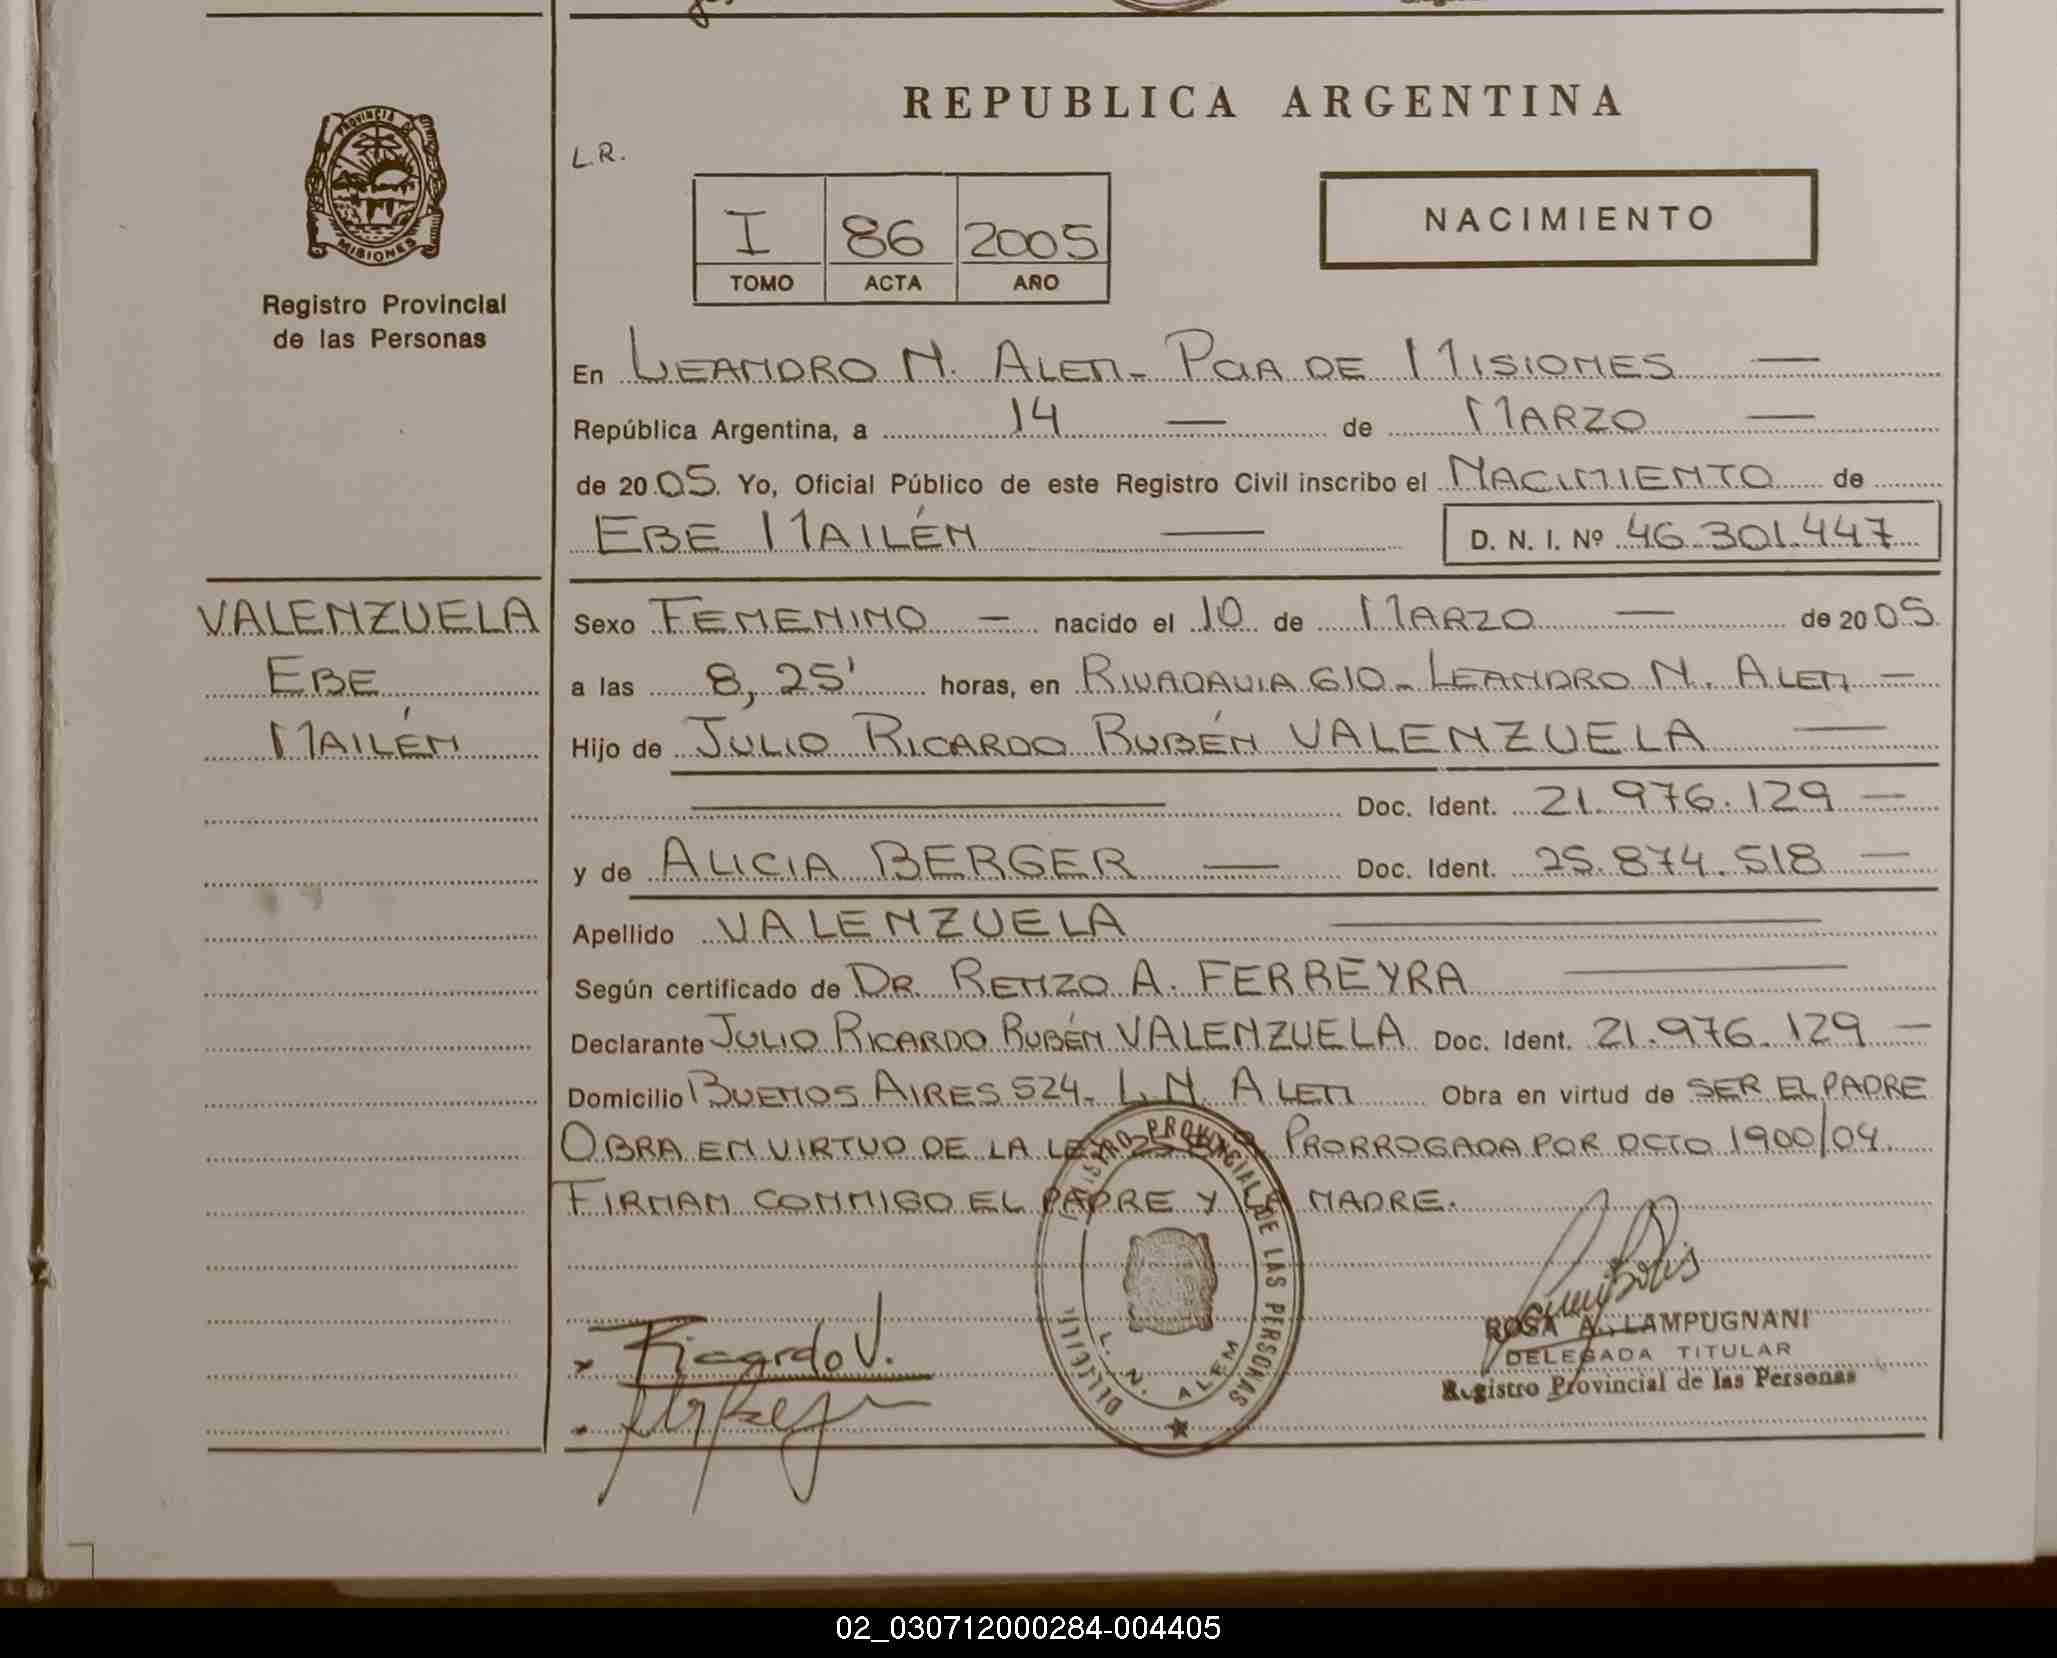 REPUBLICA ARGENTINA
L.R.
PROVINCIA DE
MISIONES
Registro Provincial
de las Personas
I 86 2005
TOMO ACTA AÑO
NACIMIENTO
En LEANDRO N. ALEM - PCIA DE MISIONES
República Argentina, a 14 de MARZO
de 2005. Yo, Oficial Público de este Registro Civil inscribo el NACIMIENTO de
EBE MAILÉN D. N. I. Nº 46.301.447
VALENZUELA
EBE
MAILÉN
Sexo FEMENINO - nacido el 10 de MARZO de 2005
a las 8,25' horas, en RIVADAVIA 610 - LEANDRO N. ALEM -
Hijo de JULIO RICARDO RUBÉN VALENZUELA
Doc. Ident. 21.976.129 -
y de ALICIA BERGER Doc. Ident. 25.874.518 -
Apellido VALENZUELA
Según certificado de DR. RENZO A. FERREYRA
Declarante JULIO RICARDO RUBÉN VALENZUELA Doc. Ident. 21.976.129 -
Domicilio BUENOS AIRES 524 - L.N. ALEM Obra en virtud de SER EL PADRE
OBRA EN VIRTUD DE LA LEY PRORROGADA POR DCTO 1900/04.
FIRMAN CONMIGO EL PADRE Y LA MADRE.
REGISTRO PROVINCIAL DE LAS PERSONAS
L. N. ALEM
Ricardo V.
ROSA A. LAMPUGNANI
DELEGADA TITULAR
Registro Provincial de las Personas
02_030712000284-004405